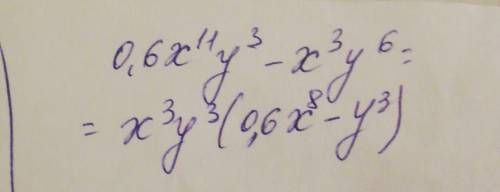 0,6x¹¹y³ - x³y⁶ =
= x³y³(0,6x⁸ - y³)